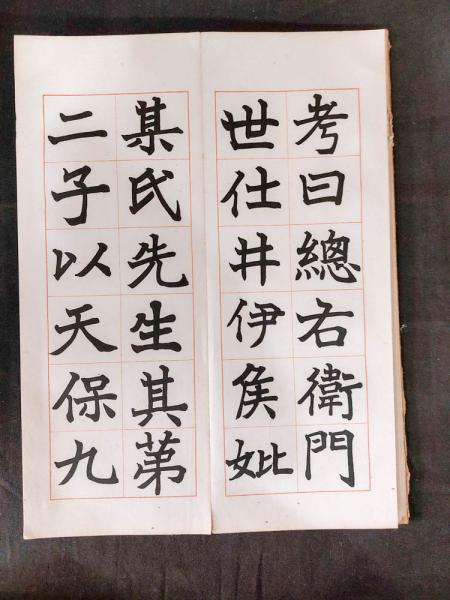 考曰總右衛門
世仕井伊矦妣
某氏先生其苐
二子以天保九